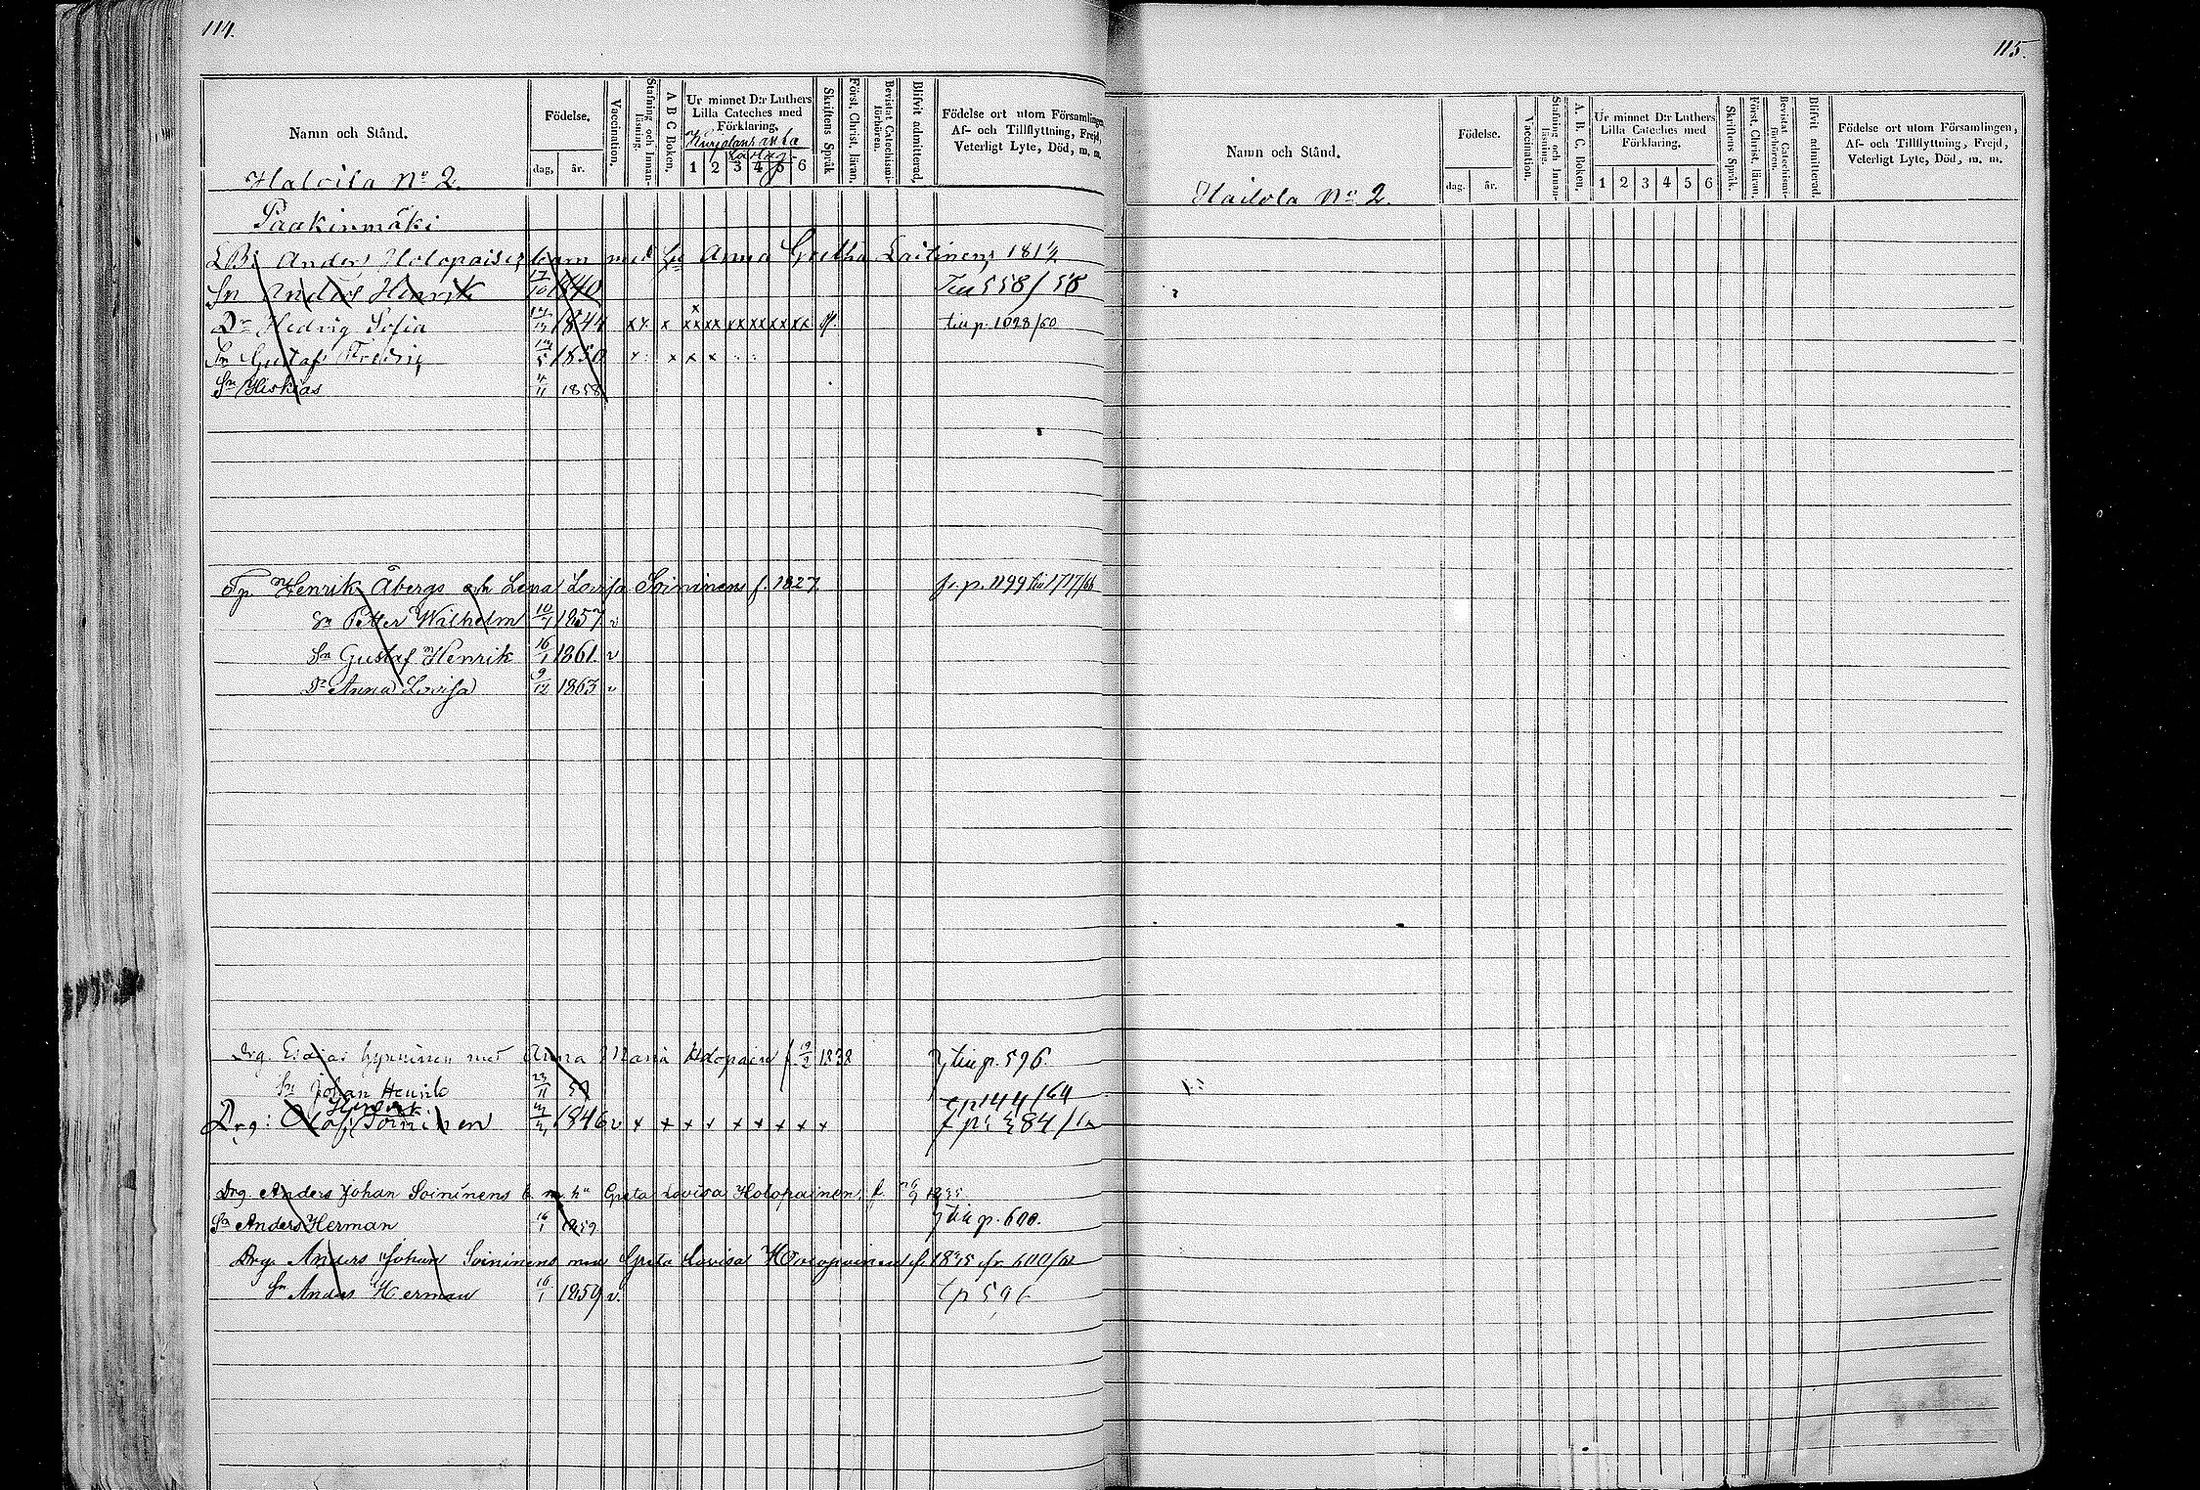 114.
Namn och Stånd.
Födelse.
dag.
år.
Vaccination.
Stafning och Innan-läsning.
A B C Boken.
Ur minnet D:r Luthers
Lilla Cateches med
Förklaring.
1 2 3 4 5 6
Skriftens Språk
Först. Christ. läran.
Bevistat Catechismi-förhören.
Blifvit admitterad.
Födelse ort utom Församlingen,
Af- och Tillflyttning, Frejd,
Veterligt Lyte, Död, m. m.
No 2.
Paakinmäki
Anders Holopaises barn med Anna Gretha Laitinen,
Sn Anders Henrik 1840 558/58
Dr Hedvig Sofia 1844 xx x till p. 1028/60
Sn Gustaf Fredrig 1850
Sn Hiskias 4/11 1858
Henrik Åbergs och Lena Lovisa Soininens f. 1827. fr. p. 1199 till 1717/66
Sn Petter Wilhelm 10/1 1857 v
Sn Gustaf Henrik 16/1 1861. v
Dr Anna Lovisa 9/12 1863 v
Drg. Esaias hyvninen med Anna Maria Holopain f. 19/2 1838 till p. 596.
Sn Johan Henrik 23/11 59 144/64
Drg: Olof Soininen 1846 v x x x x x x x x x 384/
Drg. Anders Johan Soininens Greta Lovisa Holopainen, f.
Sn Anders Herman 16/1 1859 till p. 600.
Drg. Anders Johan Soininens Greta Lovisa f. 1835 fr. 600/
Sn Anders Herman 16/1 1859 v. 596
115.
Namn och Stånd.
Födelse.
dag.
år.
Vaccination.
Stafning och Innan-läsning.
A. B. C. Boken.
Ur minnet D:r Luthers
Lilla Cateches med
Förklaring.
1 2 3 4 5 6
Skriftens Språk.
Först. Christ. läran.
Bevistat Catechismi-förhören.
Blifvit admitterad.
Födelse ort utom Församlingen,
Af- och Tillflyttning, Frejd,
Veterligt Lyte, Död, m. m.
No 2.